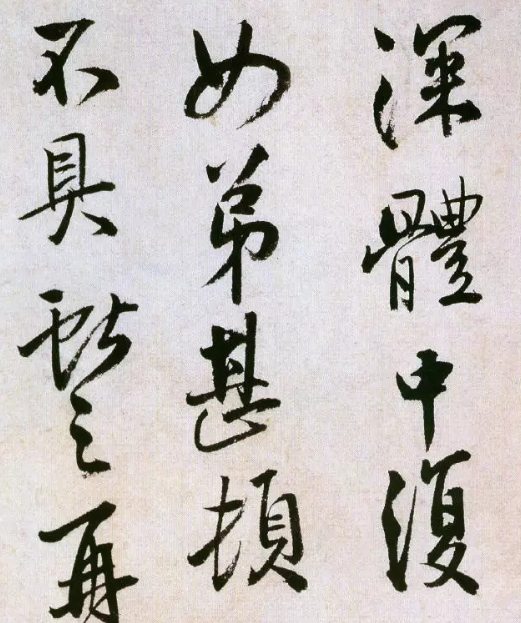 深體中復
如弟甚頓
不具獻之再